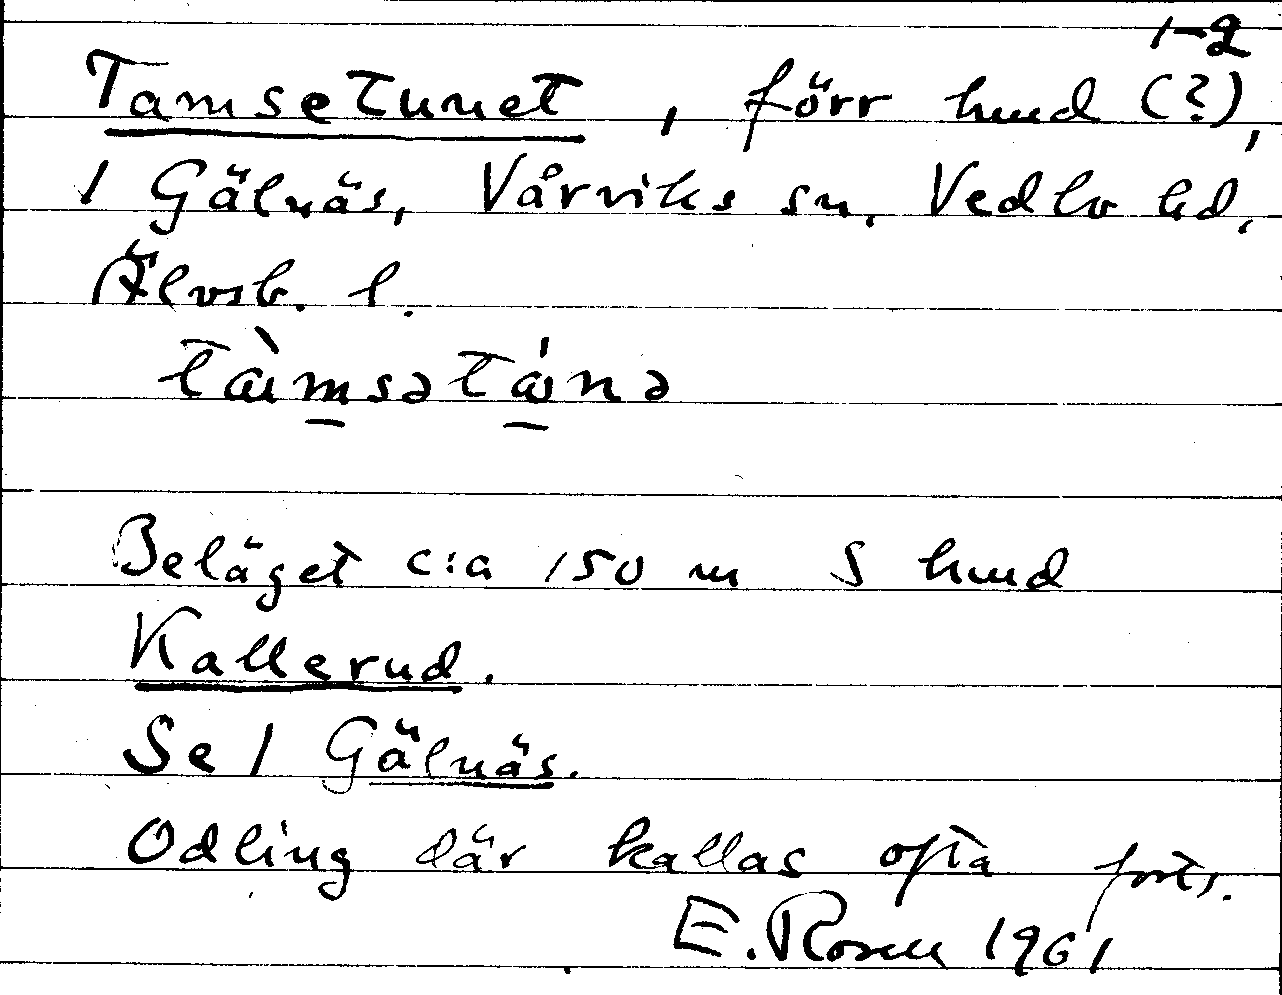 1-2
Tamsetunet, förr hmd (?),
1 Gälnäs, Vårviks sn, Vedbo hd,
Älvsb. l.
tàmsətánə
Beläget c:a 150 m S hmd
Kallerud.
Se 1 Gälnäs.
Odling där kallas ofta forts.
E. Rosen 1961